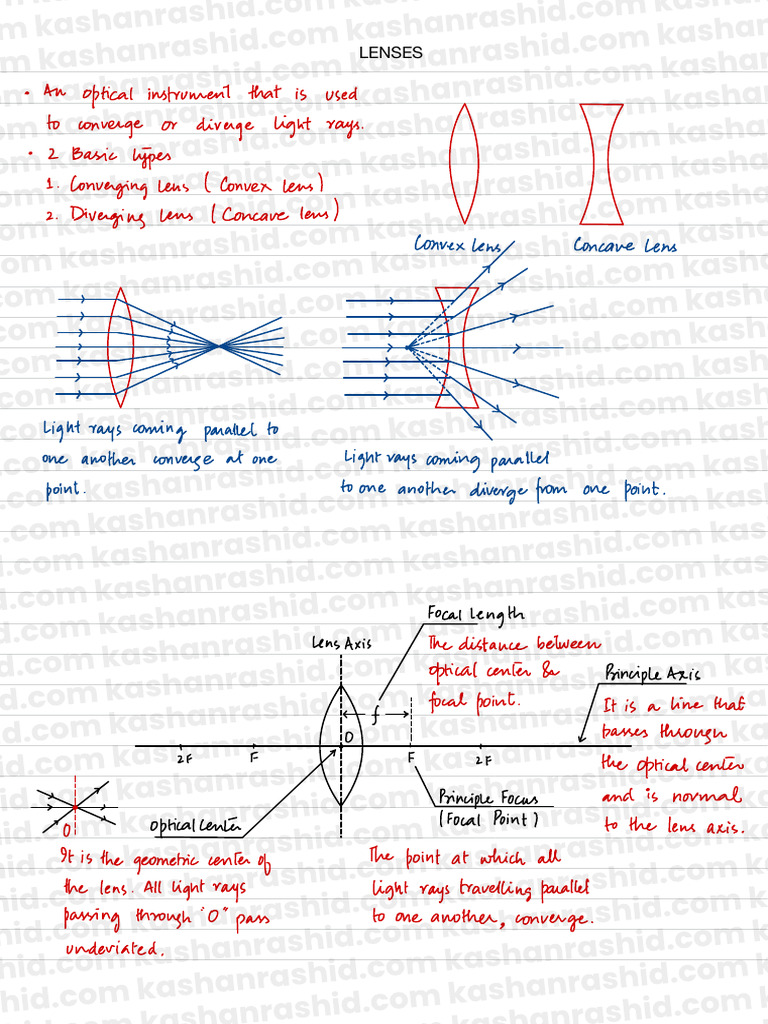 LENSES
• An optical instrument that is used
to converge or diverge light rays.
• 2 Basic types
1. Converging lens ( Convex lens )
2. Diverging lens ( Concave lens )
Convex lens
Concave lens
Light rays coming parallel to
one another converge at one
point.
Light rays coming parallel
to one another diverge from one point.
Focal Length
The distance between
optical center &
focal point.
Lens Axis
Principle Axis
It is a line that
passes through
the optical center
and is normal
to the lens axis.
f
O
2F
F
F
2F
Principle Focus
(Focal Point)
The point at which all
light rays travelling parallel
to one another, converge.
Optical Center
O
It is the geometric center of
the lens. All light rays
passing through "O" pass
undeviated.
kashanrashid.com